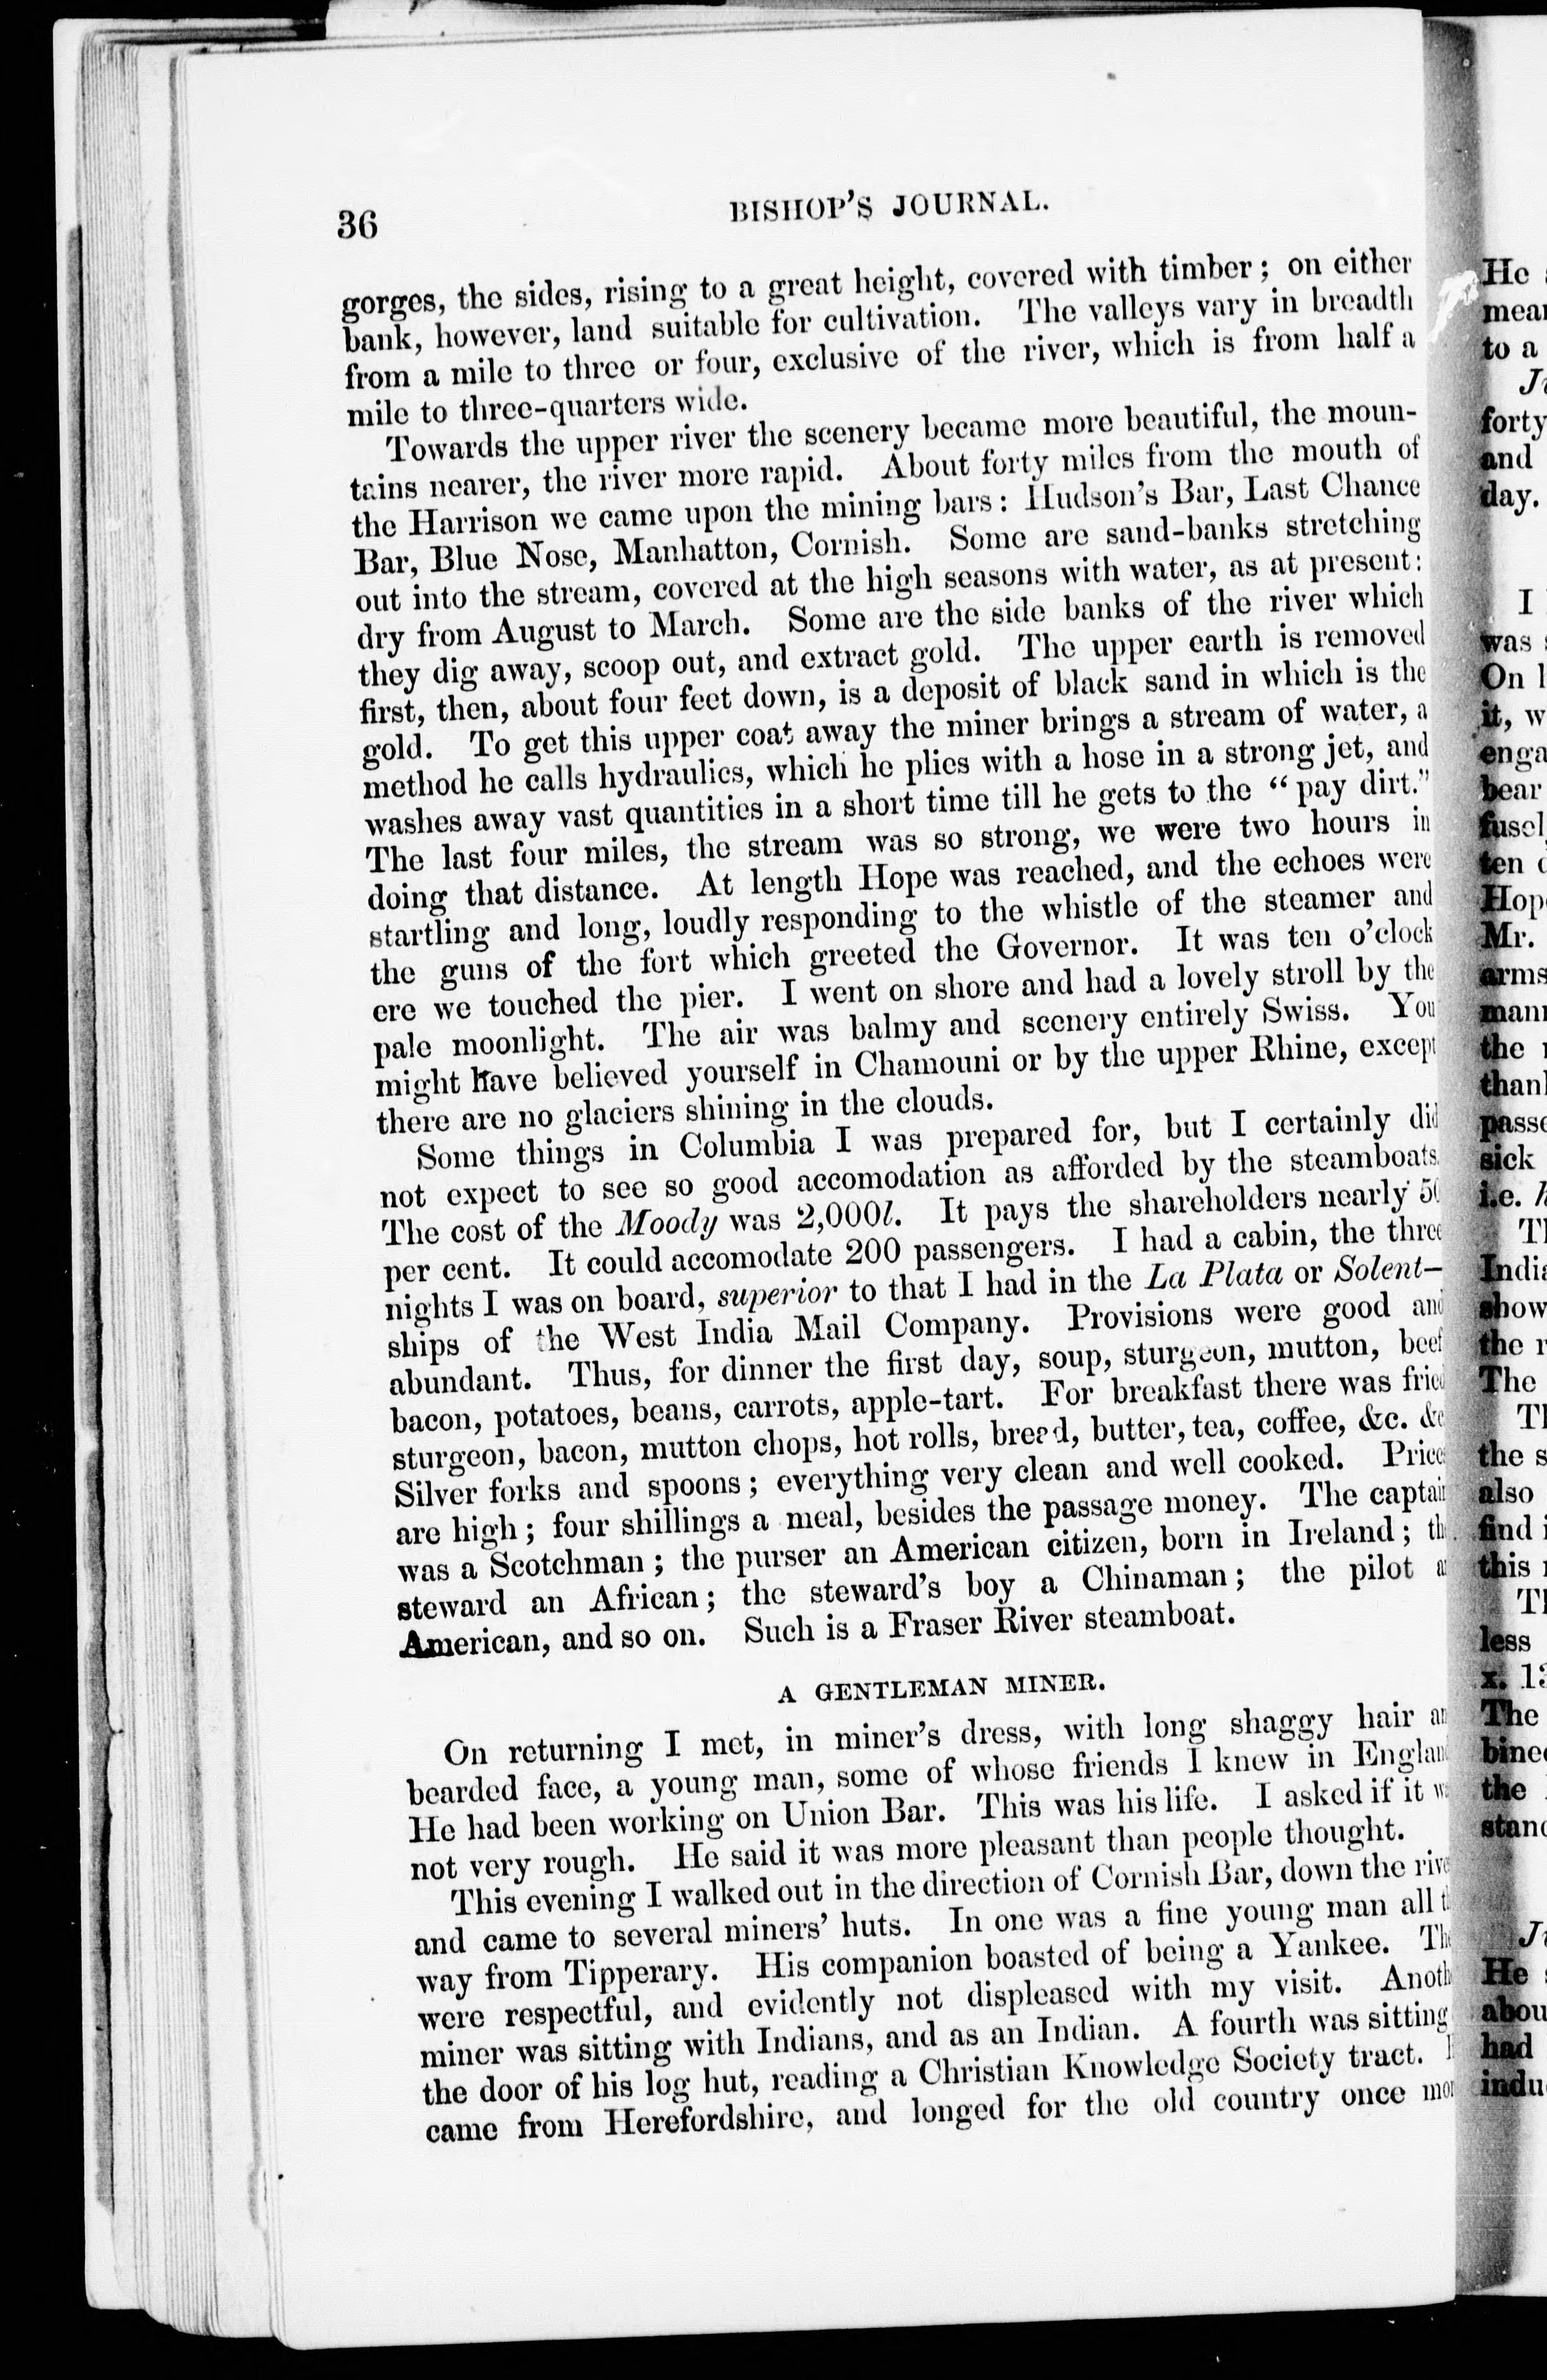 36
BISHOP'S JOURNAL.
gorges, the sides, rising to a great height, covered with timber; on either
bank, however, land suitable for cultivation. The valleys vary in breadth
from a mile to three or four, exclusive of the river, which is from half a
mile to three-quarters wide.
Towards the upper river the scenery became more beautiful, the moun-
tains nearer, the river more rapid. About forty miles from the mouth of
the Harrison we came upon the mining bars: Hudson's Bar, Last Chance
Bar, Blue Nose, Manhatton, Cornish. Some are sand-banks stretching
out into the stream, covered at the high seasons with water, as at present:
dry from August to March. Some are the side banks of the river which
they dig away, scoop out, and extract gold. The upper earth is removed
first, then, about four feet down, is a deposit of black sand in which is the
gold. To get this upper coat away the miner brings a stream of water, a
method he calls hydraulics, which he plies with a hose in a strong jet, and
washes away vast quantities in a short time till he gets to the "pay dirt."
The last four miles, the stream was so strong, we were two hours in
doing that distance. At length Hope was reached, and the echoes were
startling and long, loudly responding to the whistle of the steamer and
the guns of the fort which greeted the Governor. It was ten o'clock
ere we touched the pier. I went on shore and had a lovely stroll by the
pale moonlight. The air was balmy and scenery entirely Swiss. You
might have believed yourself in Chamouni or by the upper Rhine, except
there are no glaciers shining in the clouds.
Some things in Columbia I was prepared for, but I certainly did
not expect to see so good accomodation as afforded by the steamboats.
The cost of the Moody was 2,000l. It pays the shareholders nearly 50
per cent. It could accomodate 200 passengers. I had a cabin, the three
nights I was on board, superior to that I had in the La Plata or Solent—
ships of the West India Mail Company. Provisions were good and
abundant. Thus, for dinner the first day, soup, sturgeon, mutton, beef
bacon, potatoes, beans, carrots, apple-tart. For breakfast there was fried
sturgeon, bacon, mutton chops, hot rolls, bread, butter, tea, coffee, &c. &c
Silver forks and spoons; everything very clean and well cooked. Prices
are high; four shillings a meal, besides the passage money. The captain
was a Scotchman; the purser an American citizen, born in Ireland; th
steward an African; the steward's boy a Chinaman; the pilot a
American, and so on. Such is a Fraser River steamboat.
A GENTLEMAN MINER.
On returning I met, in miner's dress, with long shaggy hair an
bearded face, a young man, some of whose friends I knew in England
He had been working on Union Bar. This was his life. I asked if it w
not very rough. He said it was more pleasant than people thought.
This evening I walked out in the direction of Cornish Bar, down the rive
and came to several miners' huts. In one was a fine young man all t
way from Tipperary. His companion boasted of being a Yankee. The
were respectful, and evidently not displeased with my visit. Anoth
miner was sitting with Indians, and as an Indian. A fourth was sitting
the door of his log hut, reading a Christian Knowledge Society tract.
came from Herefordshire, and longed for the old country once mor
He
mean
to a
forty
and
day.
I
was
On
it, w
enga
bear
ten
Hope
Mr.
arms
the
than
passe
sick
i.e.
India
show
the
The
the s
also
find
this
less
x. 13
The
the
He
abou
had
indu